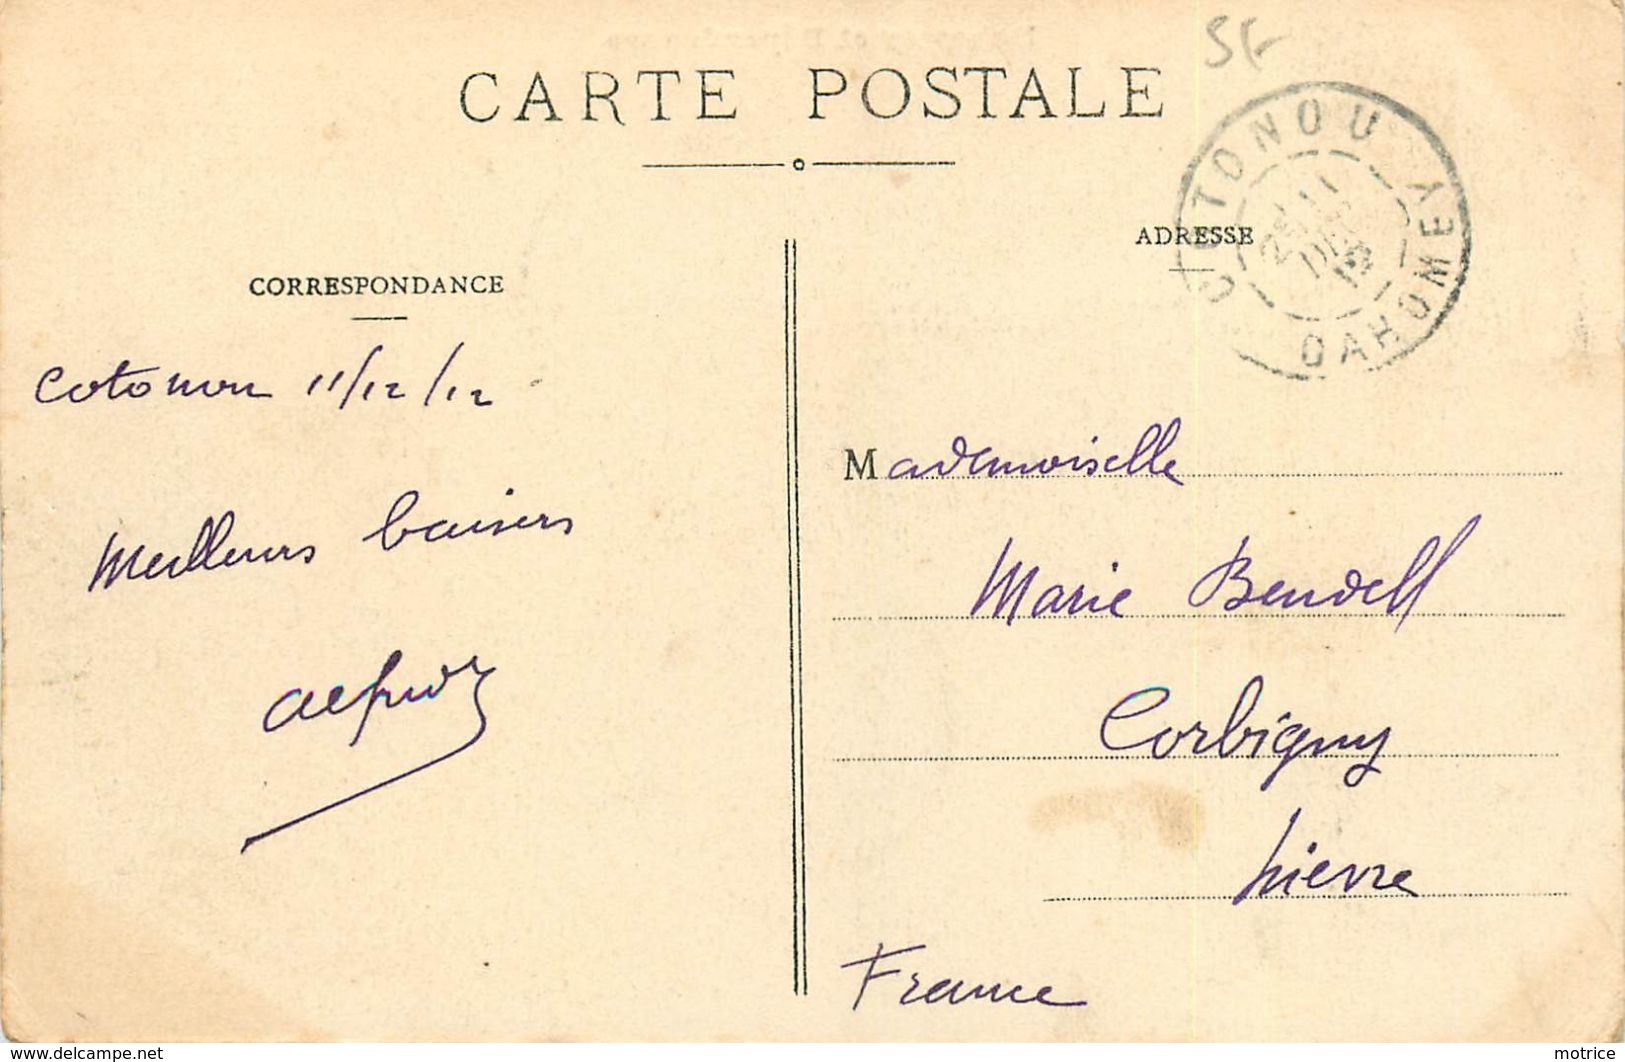 CARTE POSTALE
COTONOU
DAHOMEY
11
DEC
12
ADRESSE
CORRESPONDANCE
Cotonou 11/12/12
Mademoiselle
Meilleurs baisers
Marie Bendell
Alfred
Corbigny
Nièvre
France
www.delcampe.net
motrice